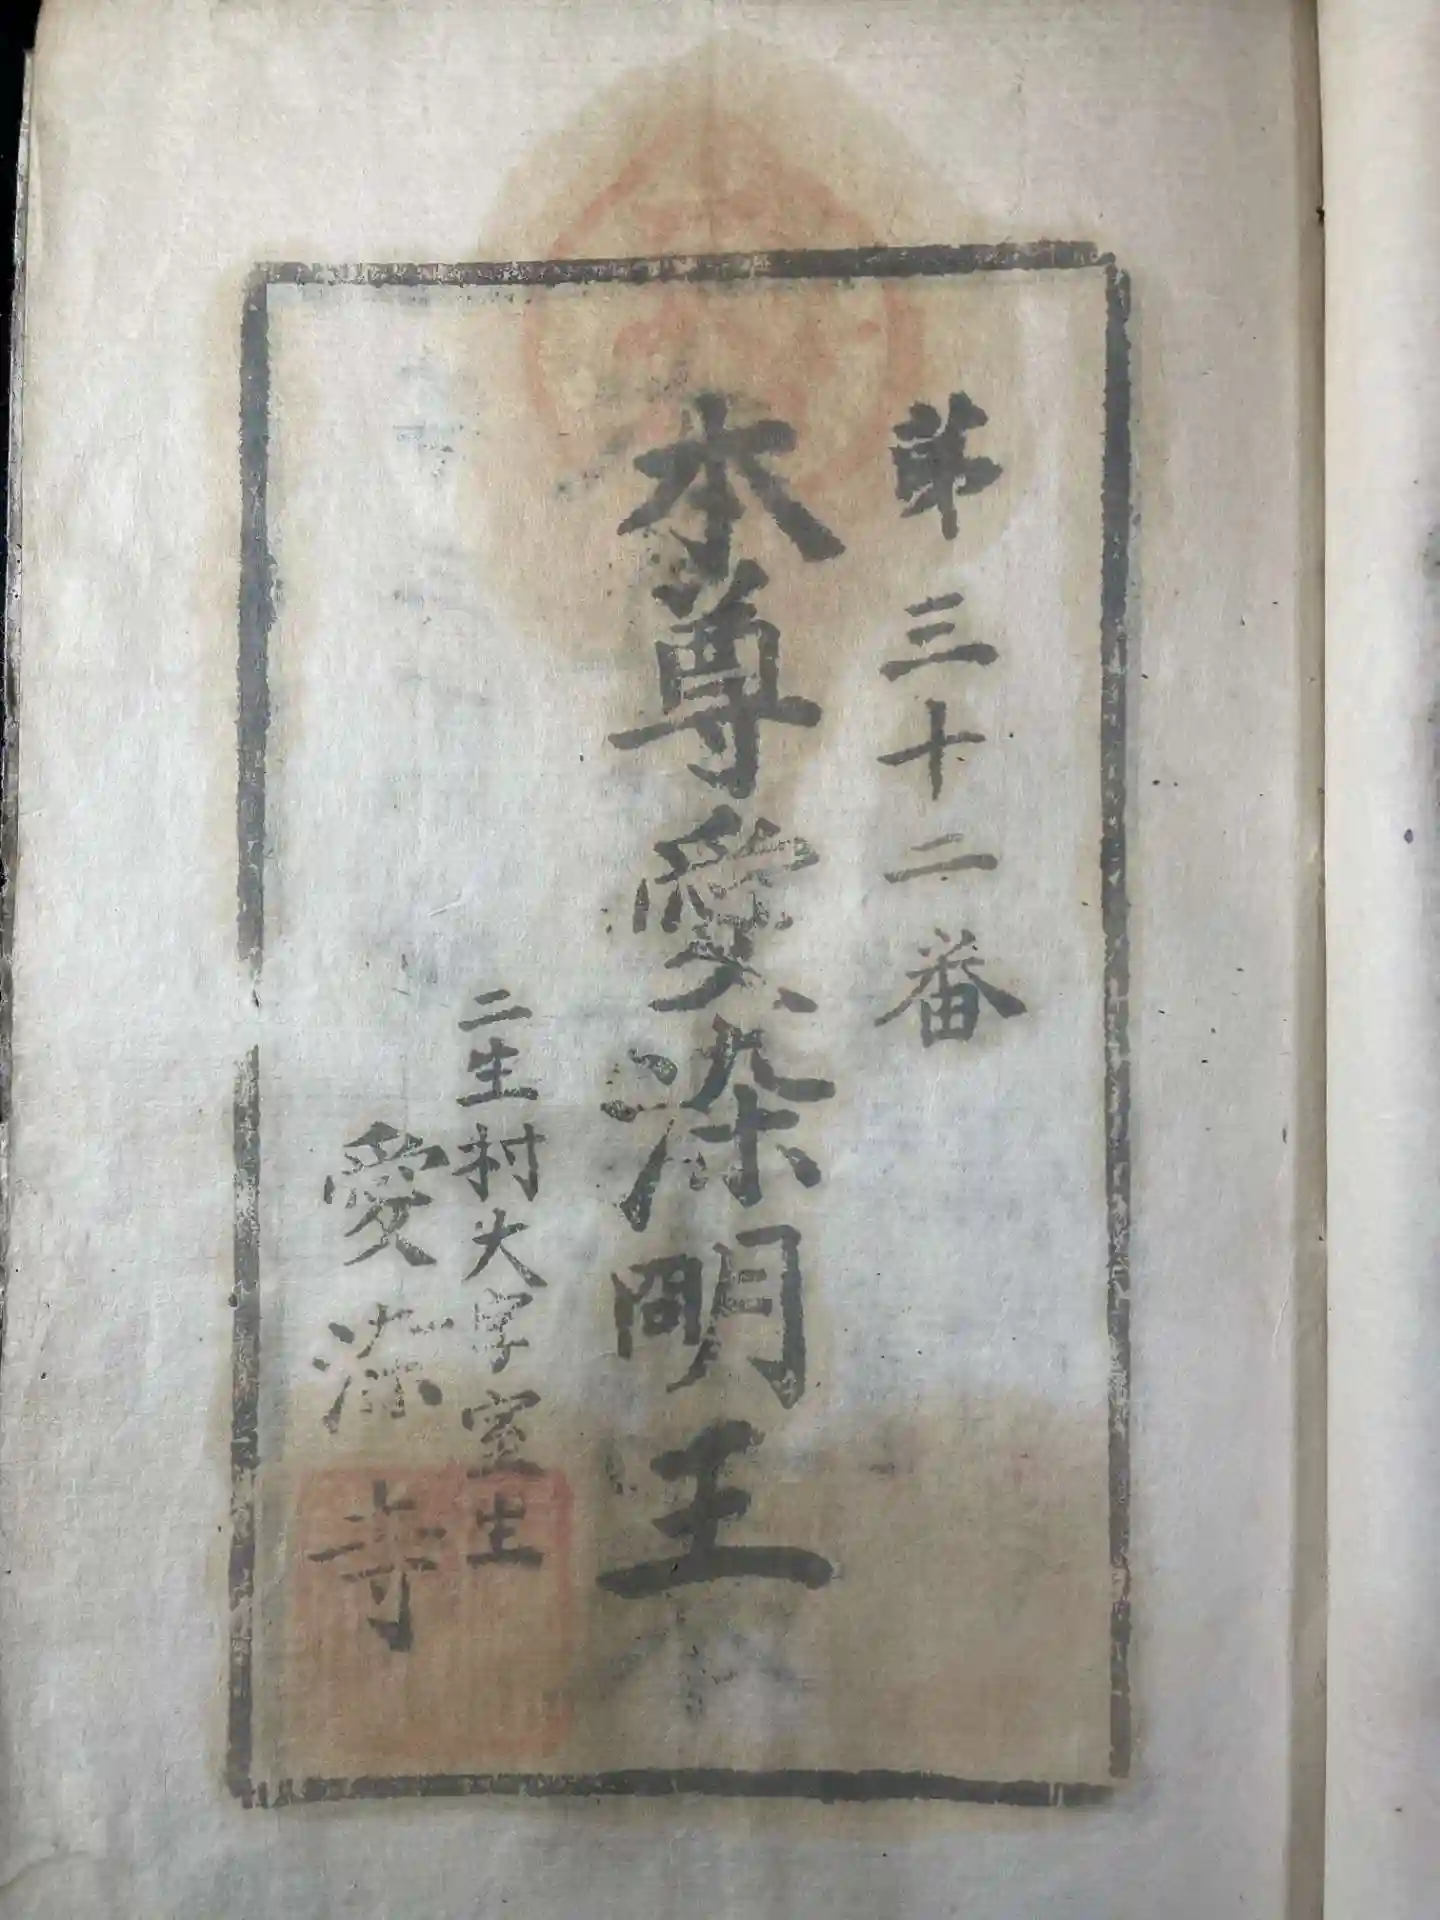 第三十二番
本尊愛染明王
二生村大字室生
愛染寺